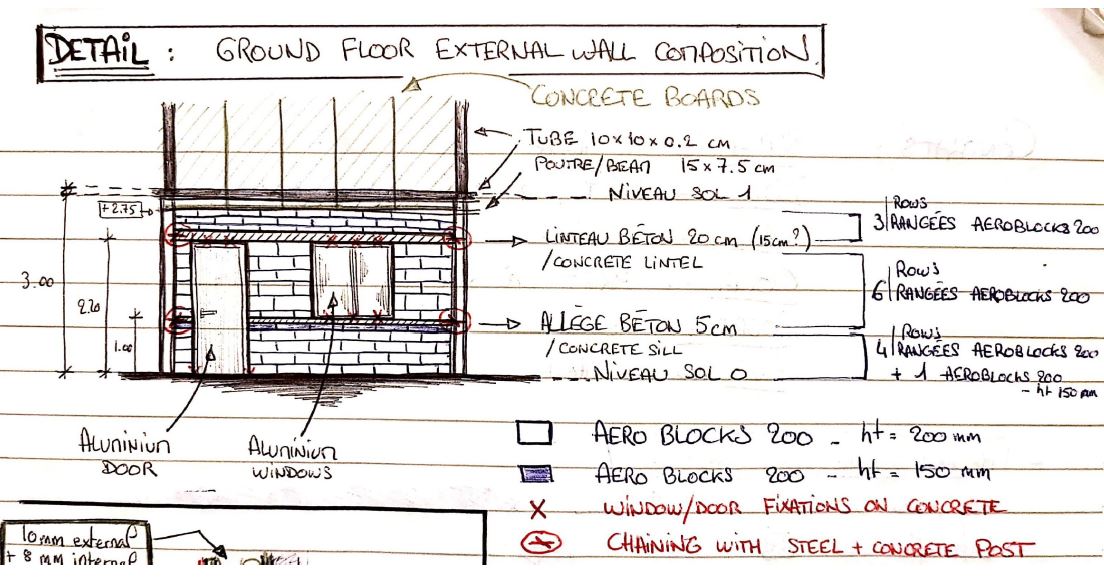 DETAIL : GROUND FLOOR EXTERNAL WALL COMPOSITION.
CONCRETE BOARDS
TUBE 10x10x0.2 cm
POUTRE/BEAM 15x7.5 cm
NIVEAU SOL 1
+2.75
ROWS
3 RANGÉES AEROBLOCKS 200
LINTEAU BÉTON 20 cm (15cm?)
/CONCRETE LINTEL
3.00
2.20
ROWS
6 RANGÉES AEROBLOCKS 200
ALLEGE BÉTON 5cm
/CONCRETE SILL
1.00
ROWS
4 RANGÉES AEROBLOCKS 200
+ 1 AEROBLOCKS 200
- ht 150 mm
NIVEAU SOL 0
ALUMINIUM
DOOR
ALUMINIUM
WINDOWS
AERO BLOCKS 200 - ht = 200 mm
AERO BLOCKS 200 - ht = 150 mm
X WINDOW/DOOR FIXATIONS ON CONCRETE
CHAINING WITH STEEL + CONCRETE POST
10mm external
+ 8 mm internal